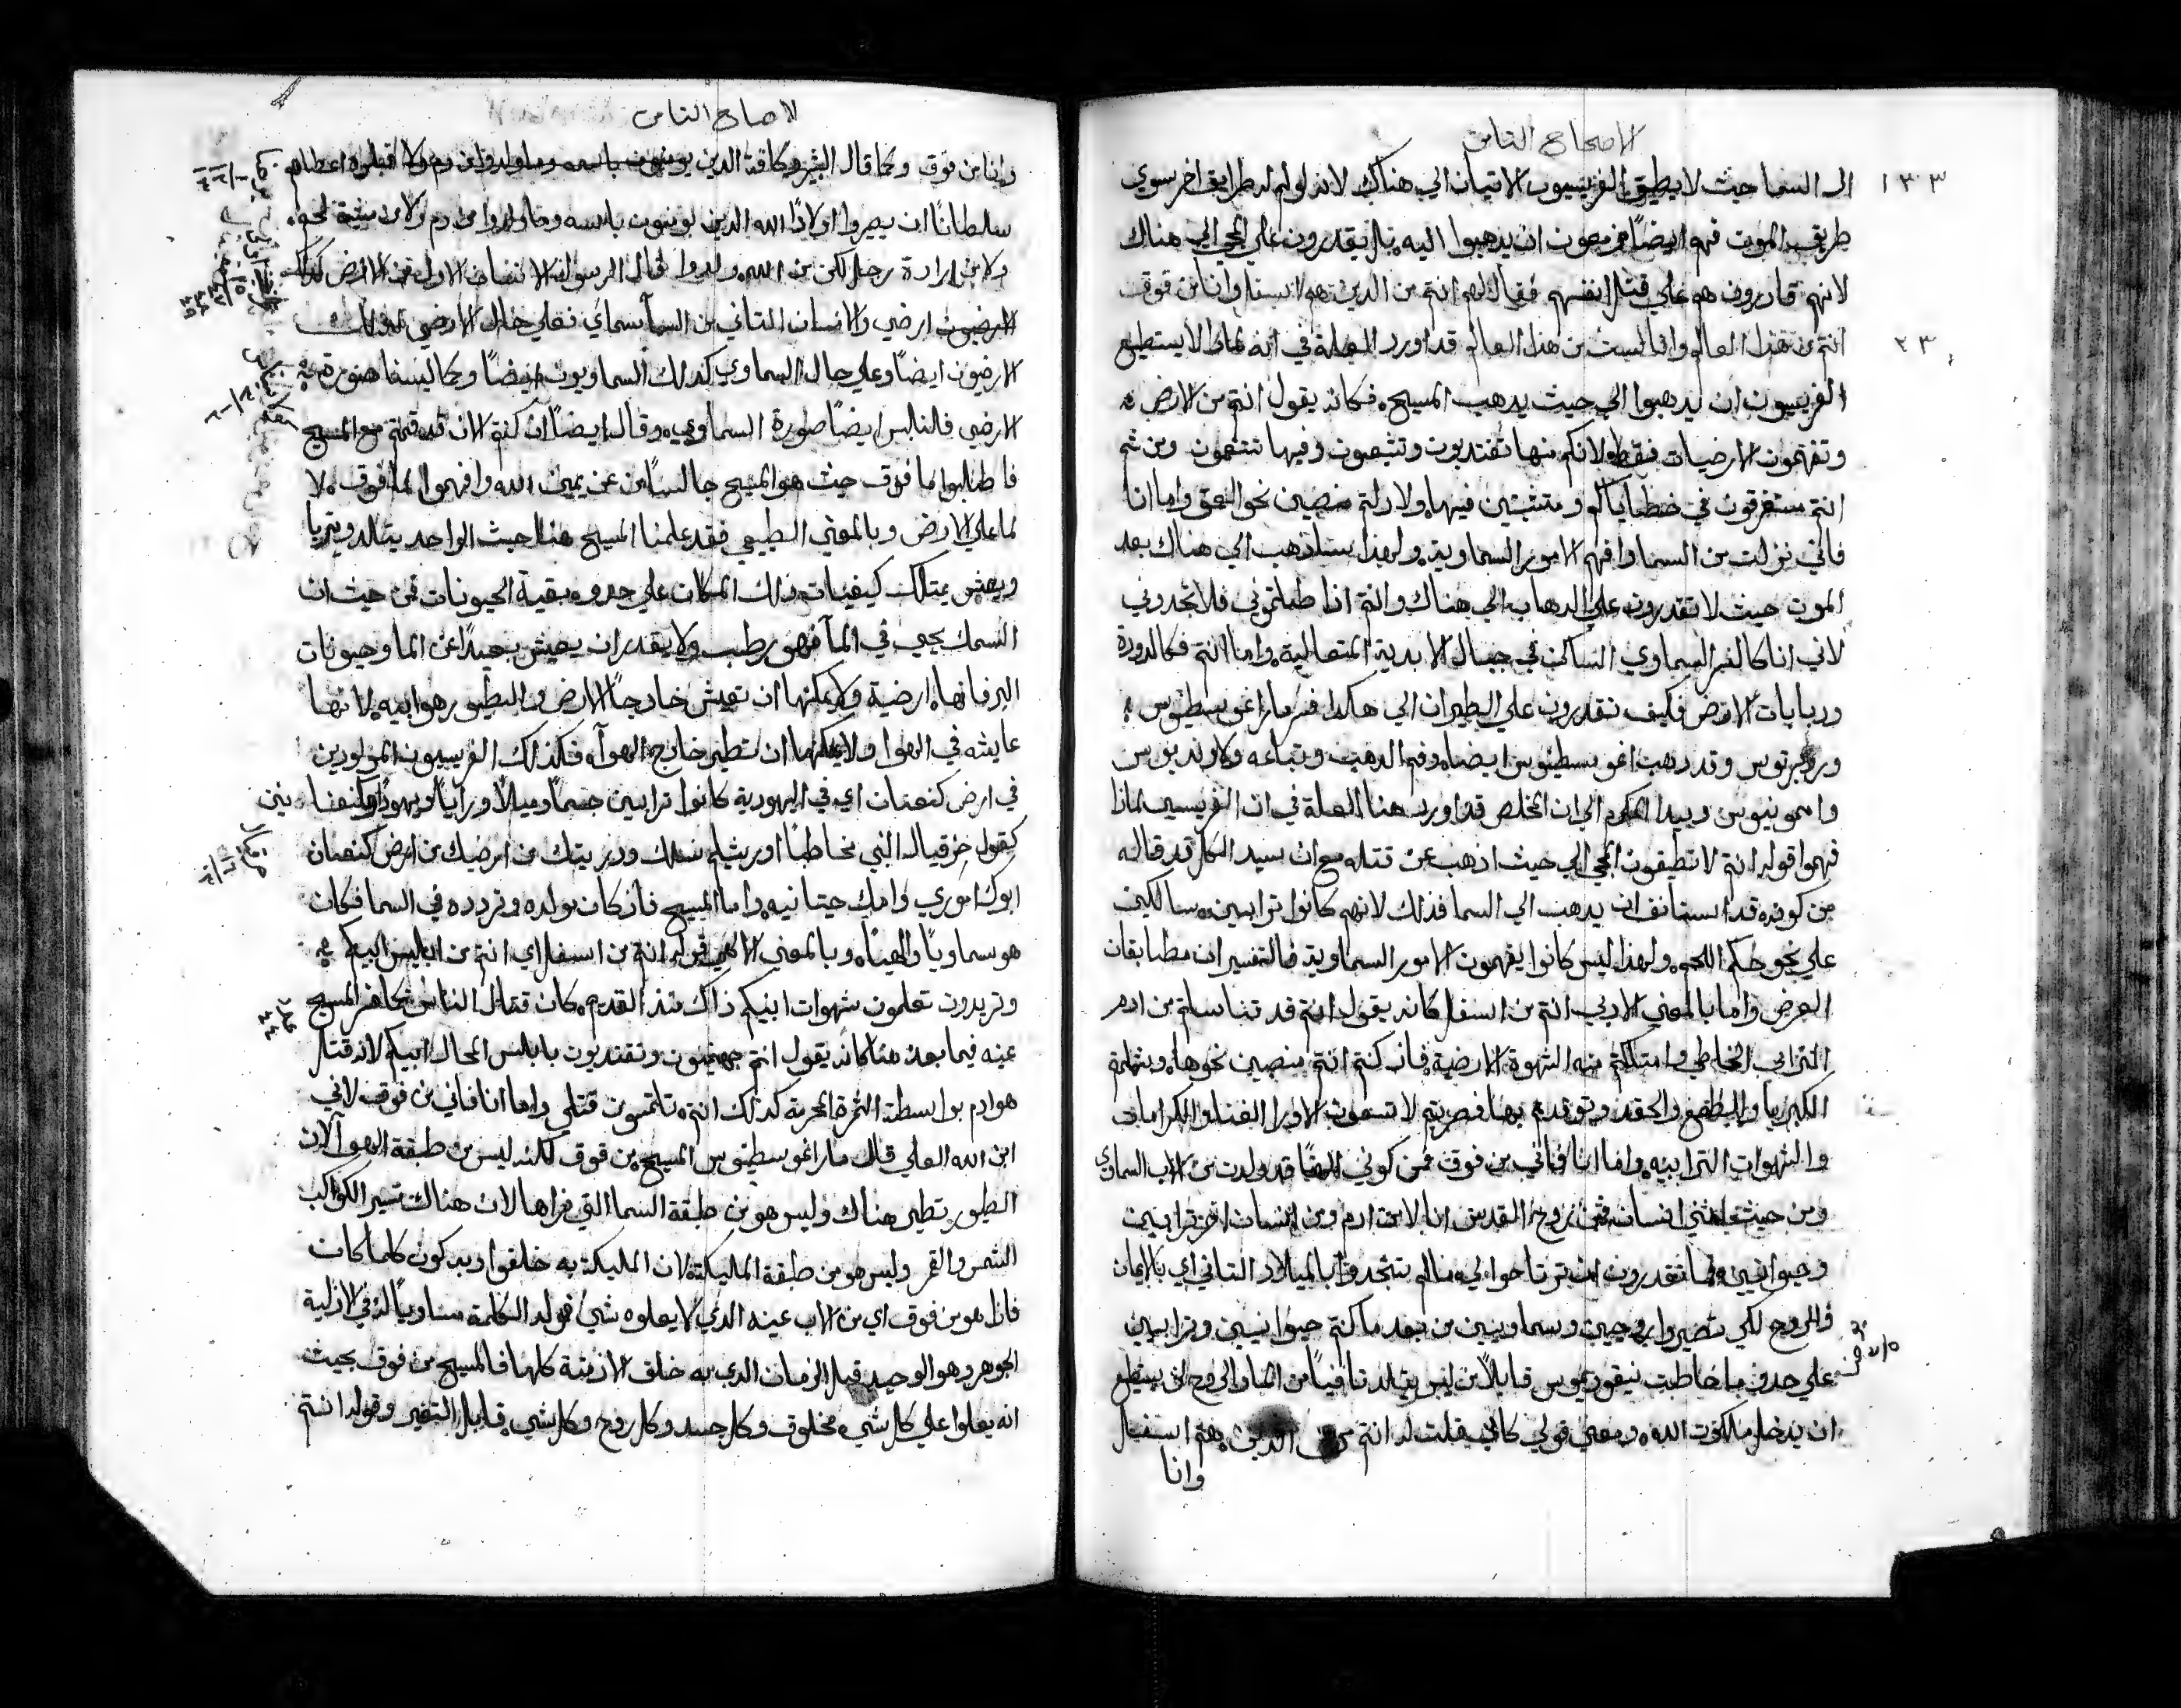 الاصحاح الثامن
١٣٣
الى السما حيث لا يطيق الفريسيون الاتيان الي هناك لانه لو لم له طرايق اخر سوي
طريق الموت فهم ايضاً مزمعون ان يدهبوا اليه بل يقدرون علي المجي الي هناك
لانهم قادرون هم علي قتل انفسهم فقال لهم انتم من الدين هم اسفل وانا من فوق
٢٣
انتم من هذا العالم وانا لست من هذا العالم قد اورد العلة في انه لماذا لا يستطيع
الفريسيون ان يدهبوا الي حيث يدهب المسيح فكانه يقول انتم من الارض
وتفهمون الارضيات فقط لانكم منها تغتدون وتشبعون وفيها تتنعمون ومن ثم
انتم مستغرقون في خطاياكم ومتثبتين فيها ولا زلتم منصبين نحو العمق واما انا
فاني نزلت من السما وافهم الامور السماوية ولهذا ساذهب الي هناك بعد
الموت حيث لا تقدرون علي الدهاب الي هناك وانتم اذا طلبتموني فلا تجدوني
لاني انا كالنسر السماوي الساكن في جبال الابدية المتعالية واما انتم فكالدودة
ودبابات الارض فكيف تقدرون علي الطيران الي هكدا فسر مار اغوسطينوس
وروبرتوس وقد دهب اغوسطينوس ايضا وفم الدهب وتباعه ولاونديوس
وامونيوس وبيدا المكرم الي ان المخلص قد اورد هنا العلة في ان الفريسيين لماذا
فهموا قوله انتم لا تطيقون المجي الي حيث اذهب عن قتله مع ان سيد الكل قد قاله
من كونه قد استانف ان يدهب الي السما فذلك لانهم كانوا ترابيين سالكين
علي نحو حكم اللحم ولهذا ليس كانوا يفهمون الامور السماوية فالتفسيران مطابقان
الغرض واما بالمعني الادبي انتم من اسفل كانه يقول انتم قد تناسلتم من ادم
الترابي الخاطي وامتلكتم منه الشهوة الارضية فاذ كنتم انتم منصبين نحوها ومثلهم
الكبريا والطمع والحقد وتوقدتم بها فصرتم لا تسعون الا ورا الغنا والكرامات
والشهوات الترابيه واما انا فاني من فوق فمن كوني الهًا قد ولدت من الاب السماوي
ومن حيث انني انسان فمن روح القدس انا لا من ادم ومن انسان اخر ترابيين
وحيوانيين ولما تقدرون ان ترتاحوا لي ما لم تتجددوا بالميلاد الثاني اي بالايمان
والروح لكي تصيروا روحيين وسماويين من بعد ما كنتم حيوانيين وترابيين
علي حدو ما خاطبت نيقوديموس قايلاً من ليس يتلد ثانياً من الما والروح لن يستطيع
ان يدخل ملكوت الله ومعني قولي كاني قلت له انتم من الدين هم اسفل
وانا
لاصحاح الثامن
وانا من فوق وكما قال البشير وكافة الدين يومنون باسمه وما ولدوا من دم ولا قبلوه اعطاهم
سلطاناً ان يصيروا اولادًا الله الدين يومنون باسمه وما ولدوا من دم ولا من مشية لحم
ولا من ارادة رجل لكن من الله ولدوا قال الرسول الانسان الاول من الارض كذلك
الارضيون ارضي والانسان الثاني من السمآ سماي فعلي حال الارضي كذلك
الارضيون ايضاً وعلي حال السماوي كذلك السماويون ايضاً وكما لبسنا صورة
الارضي فلنلبس ايضاً صورة السماوي وقال ايضاً ان كنتم الان قد قمتم مع المسيح
فاطلبوا ما فوق حيث هو المسيح جالساً من عن يمين الله وافهموا لما فوق لا
لما علي الارض وبالمعني الطبيعي فقد علمنا المسيح هنا حيث الواحد يتالد ويتربا
ويعيش يمتلك كيفيات ذلك المكان علي حدو بقية الحيونات فمن حيث ان
السمك يحيى في المآ فهو رطب ولا يقدر ان يعيش بعيداً عن الما وحيونات
البر فانها ارضية ولا يمكنها ان تعيش خارجاً الارض والطيور هوايية لانها
عايشه في الهوا ولا يمكنها ان تطير خارج الهوآ فكذلك الفريسيون المولودين
في ارض كنعان اي في اليهودية كانوا ترابيين جسماً وميلاً ورايا ويهوداً وكنعانيين
كقول حزقيال النبي مخاطباً اورشليم نسلك وذريتك من ارضك من ارض كنعان
ابوك اموري وامك حيتانيه واما المسيح فاذ كان مولده وتردده في السما فكان
هو سماوياً والهياً وبالمعني الالهي قوله انتم من اسفل اي انتم من ابليس ابيكم
وتريدون تعلمون شهوات ابيكم ذاك منذ القدم كان قتال الناس كما فسر المسيح
عينه فيما بعد هنا كانه يقول انتم جهنميون وتقتدون بابليس المحال ابيكم لانه قتل
هو ادم بواسطة الثمرة المحرمة كذلك انتم تلتمسون قتلي واما انا فاني من فوق لاني
ابن الله العلي قال مار اغوسطينوس المسيح من فوق لكنه ليس من طبقة الهوآ لان
الطيور تطير هناك وليس هو من طبقة السما التي نراها لان هناك تسير الكواكب
الشمس والقمر وليس هو من طبقة المليكة لان المليكة به خلقوا وبه كون كلما كان
فاذا هو من فوق اي من الاب عينه الدي لا يعلوه شي فولد الكلمة مساوياً له في الازلية
الجوهر وهو الوحيد قبل الزمان الدي به خلق الازمنة كلها فالمسيح من فوق بحيث
انه يعلوا علي كل شي مخلوق وكل جسد وكل روح وكل شي قابل التغير وقوله انتم